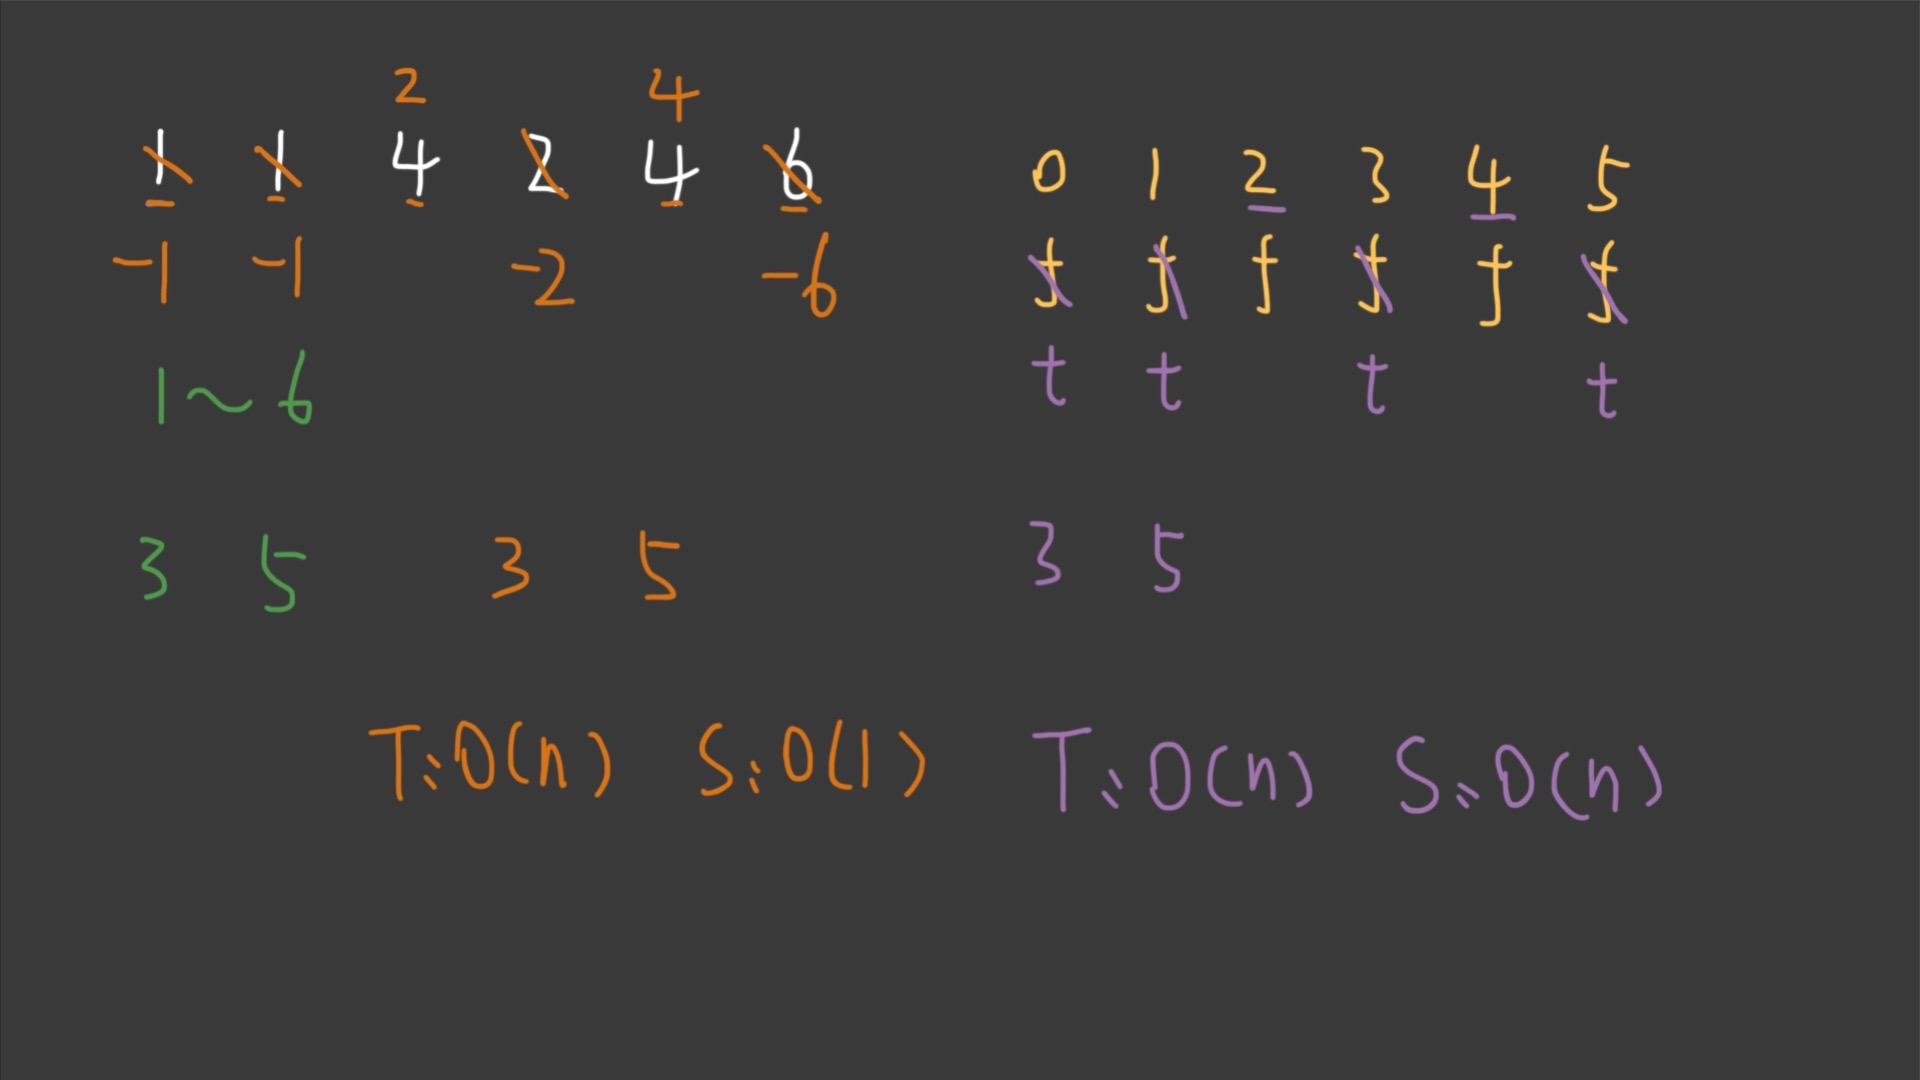 2 4
1 1 4 2 4 6
-1 -1 -2 -6
1~6
3 5 3 5
T:O(n) S:O(1)
0 1 2 3 4 5
f f f f f f
t t t t
3 5
T:O(n) S:O(n)